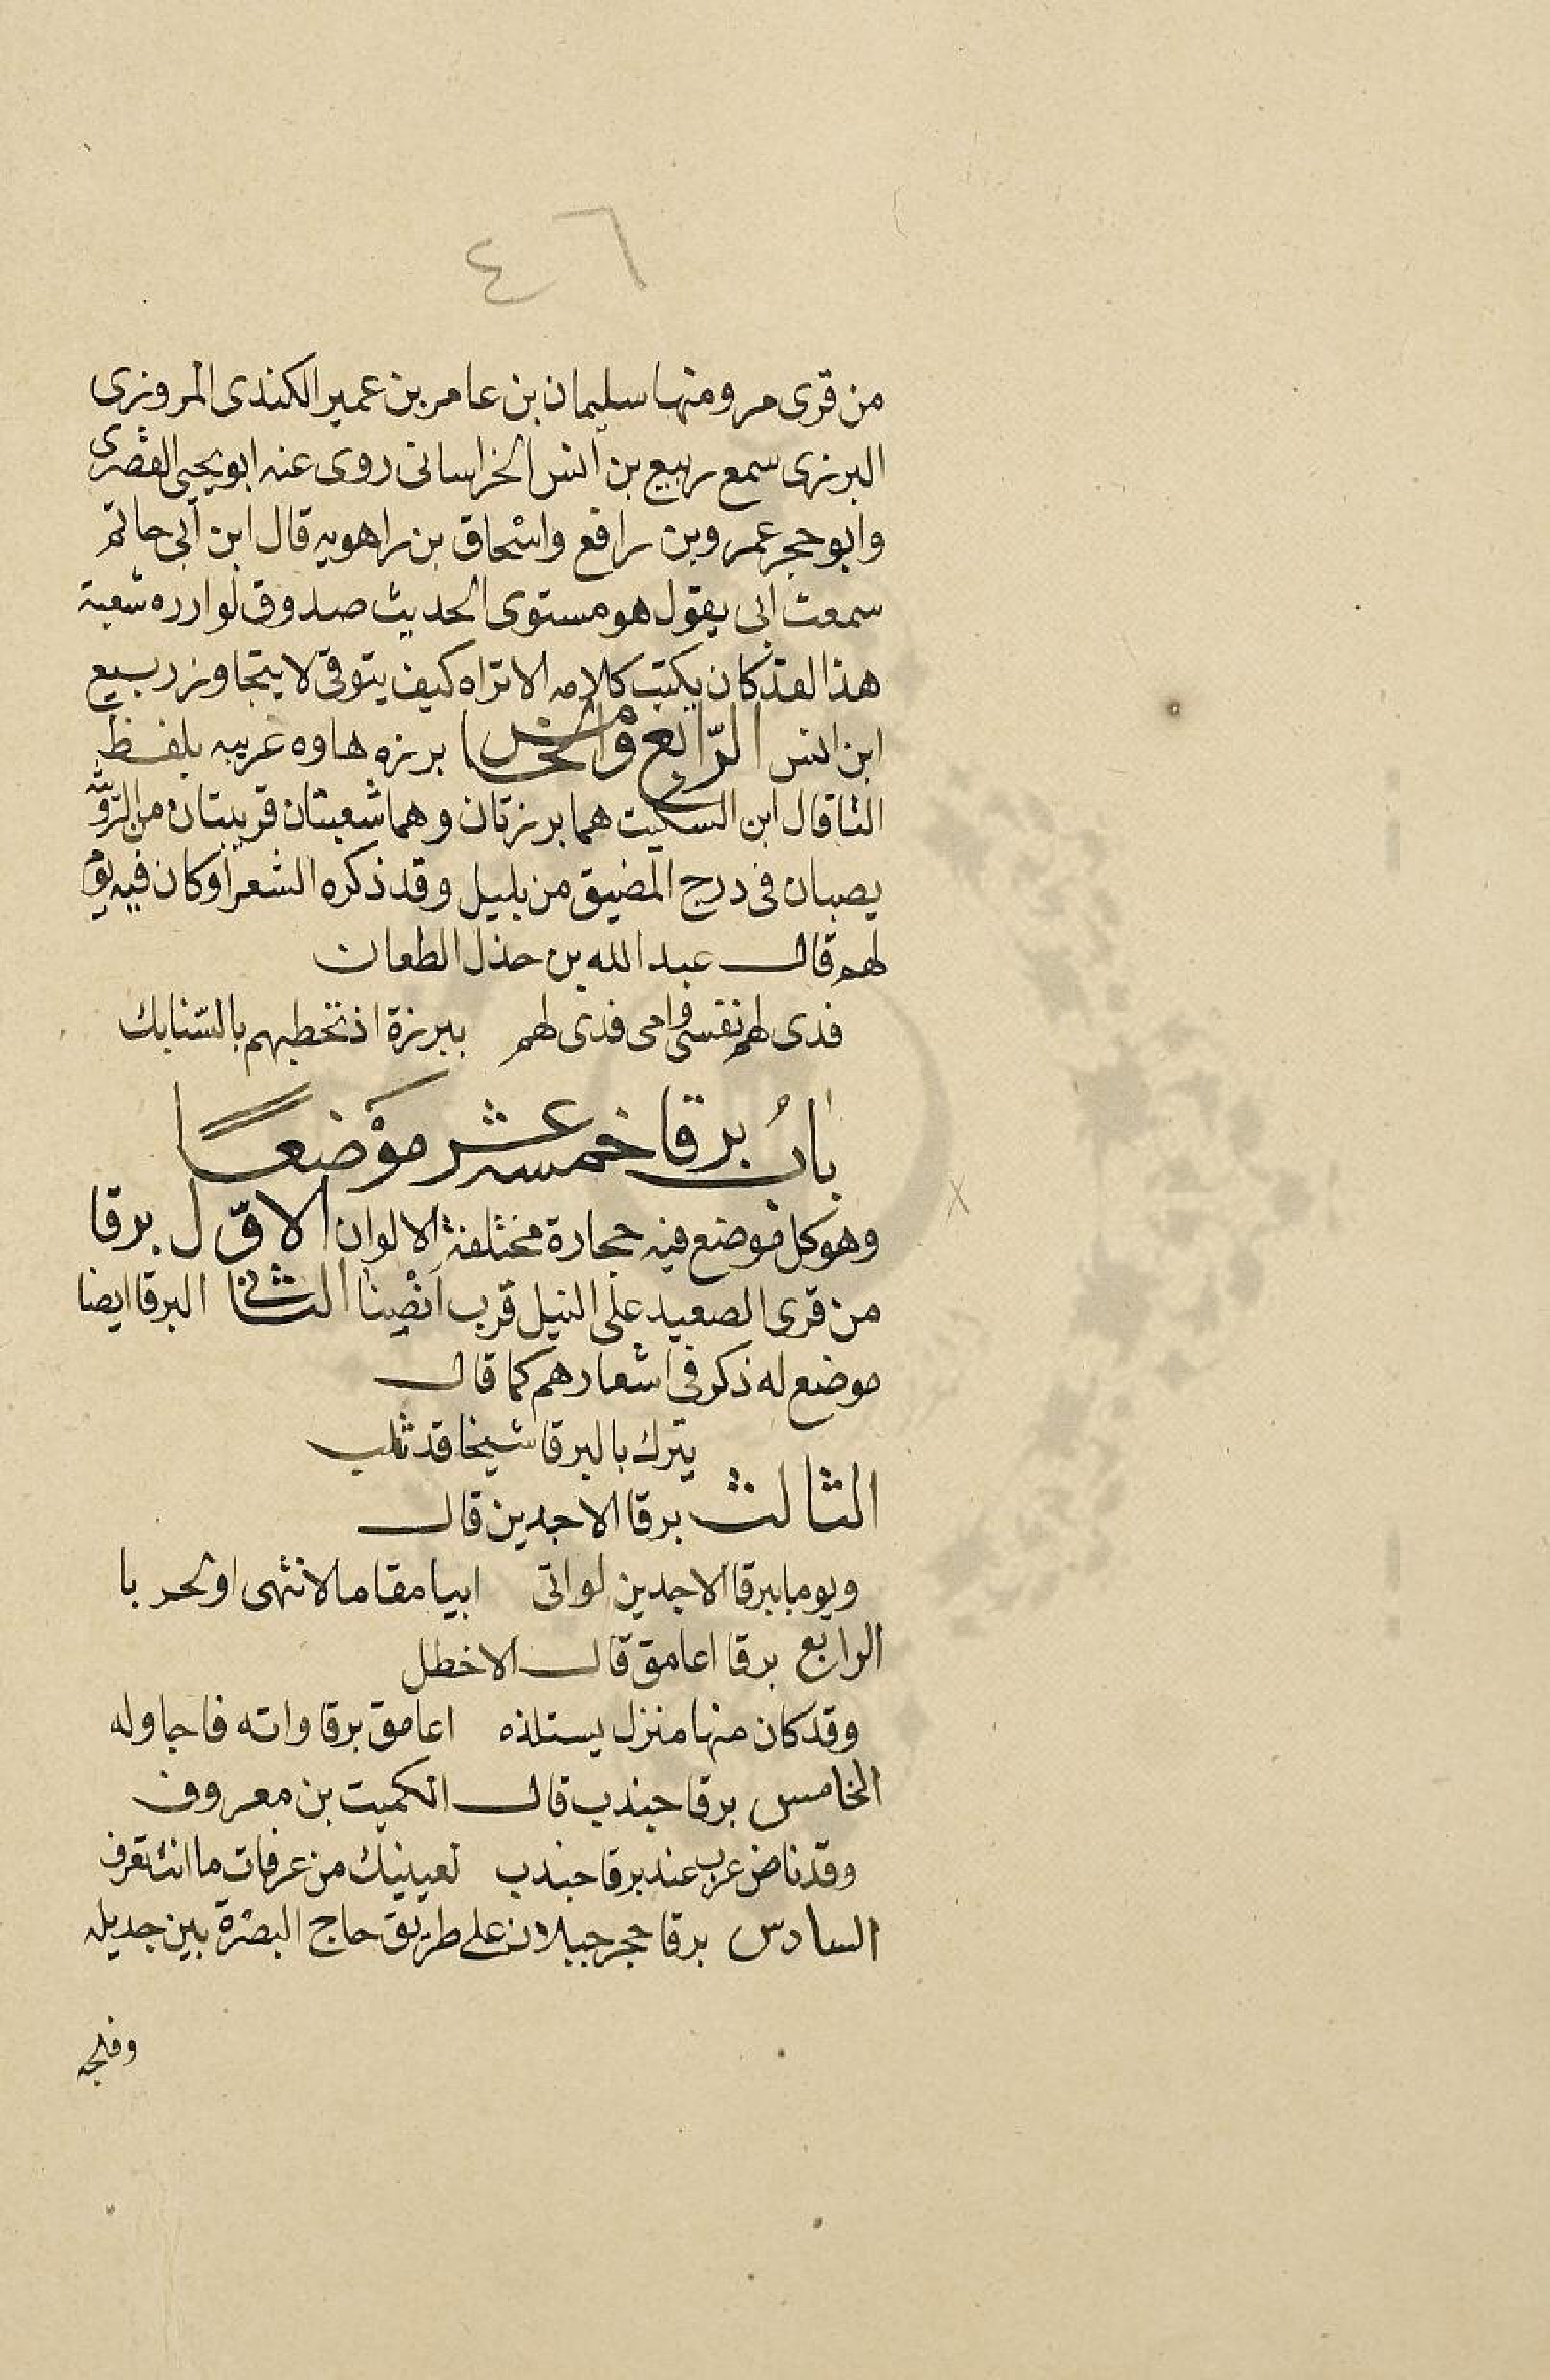 ٤٦
من قرى مرو ومنها سليمان بن عامر بن عمير الكندى المروزى
البرزى سمع ربيع بن أنس الخراسانى روى عنه ابو يحيى القصرى
وابو حجر عمرو بن رافع واسحاق بن راهويه قال ابن أبى حاتم
سمعت ابى يقول هو مستوى الحديث صدوق لو ارره شعبة
هذا لقد كان يكتب كلامه الا تراه كيف يتوقى لا يتجاوز ربيع
ابن انس الرّابع والخامس برزه هاوه عربيه بلفظ
التا قال ابن السكيت هما برزتان وهما شعبتان قريبتان من الرّويثه
يصبان فى درج المضيق من يليل وقد ذكره الشعرا وكان فيه يوم
لهم قال عبد الله بن حذل الطعان
فدى لهم نفسى وامى فدى لهم ببرزة اذ تخطبهم بالسّنابك
بابُ برقا خمسه عشر موْضعًا
وهو كل موضع فيه حجارة مختلفة الالوان الاوّل برقا
من قرى الصعيد على النيل قرب اَنْصِنا الثانى البرقا ايضا
موضع له ذكر فى اشعارهم كما قال
يترك بالبرقا شيخا قد ثلب
الثالث برقا الاجدين قال
ويوما ببرقا الاجدين لو اتى ابيا مقامه لانتهى او لحربا
الرابع برقا اعامق قال الاخطل
وقد كان منها منزل يستلذه اعامق برقاواته فاجاوله
الخامس برقا جندب قال الكميت بن معروف
وقد ناض عرب عند برقا جندب لعينيك من عرفات ما انت تعرف
السادس برقا حجر جبلان على طريق حاج البصرة بين جديله
وفلجه